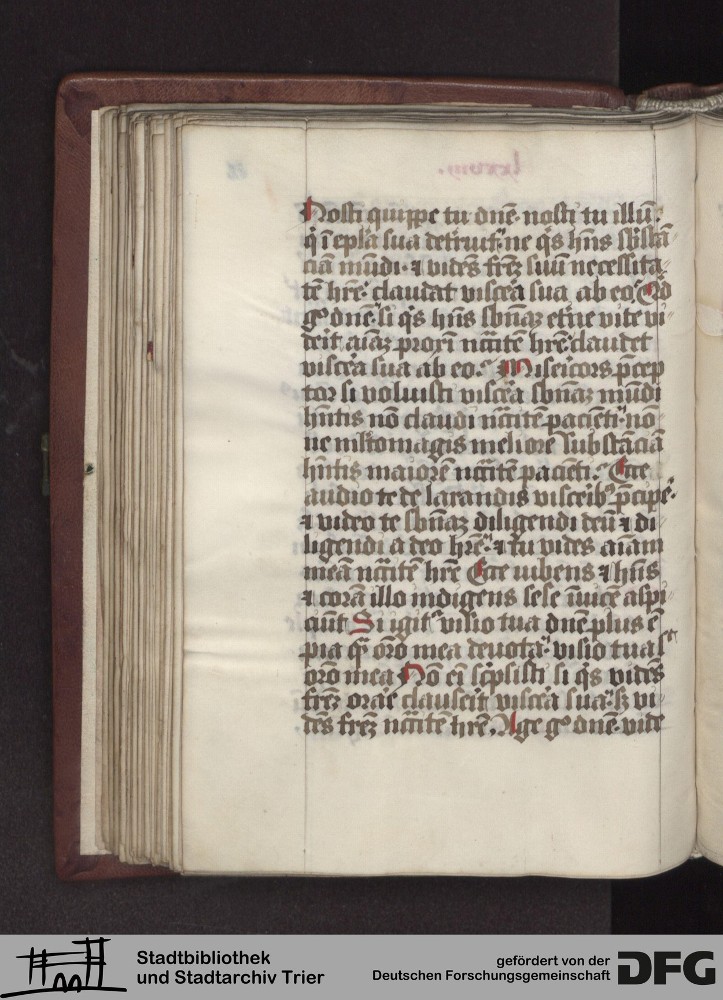 Nosti quippe tu dn̄e· nosti tu illū·
q̇ ī ep̄la sua detruit· ne q̇s hn̄s sb̄stā
ciā mūdi· ⁊ vidēs frēꝫ suū necessita
tē hr̄e· claudat viscēa sua ab eo· Qd
gͦ dn̄e· si q̇s hn̄s sb̄n̄aꝫ et̄ne vite vi
deit aīaꝫ ꝓxoꝝ nc̄itē hr̄e· claudet
viscēa sua ab eo· Miseicors p̄cep
tor si voluisti viscēa sbn̄aꝫ mūdi
hn̄tis nō claudi nc̄itē pacienti· nō
ne mltomagis meliorē substāciā
hn̄tis maiorē nc̄itē pacieti· Ecce
audio te de laxandis visceibꝰ p̄cipe·
⁊ video te sbn̄aꝫ diligendi deū ⁊ di
ligendi a deo hr̄e· ⁊ tu vides aīam
meā nc̄itē hr̄e Ecce iubens ⁊ hn̄s
⁊ corā illo indigens sese īuicē aspi
ciūt Si igit᷑ visio tua dn̄e plus ē
pia qͣ or̄o mea deuota· visio tua sͭ
or̄o mea Nō ei sc̄psisti si q̇s vidēs
frēꝫ orāe clauseit viscēa sua· sꝫ vi
dēs frēꝫ nc̄itē hr̄e· Age gͦ dn̄e· vide
Stadtbibliothek
und Stadtarchiv Trier
gefördert von der
Deutschen Forschungsgemeinschaft
DFG